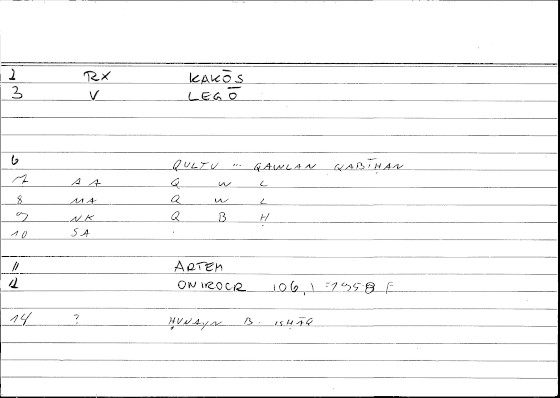 2 RX KAKŌS
3 V LEGŌ
6 QULTU ... QAWLAN QABĪḤAN
7 AA Q W L
8 MA Q W L
9 NK Q B Ḥ
10 SA .
11 ARTEM
ONIROCR 106,1 =
14 ? ḤUNAYN B. ISḤĀQ